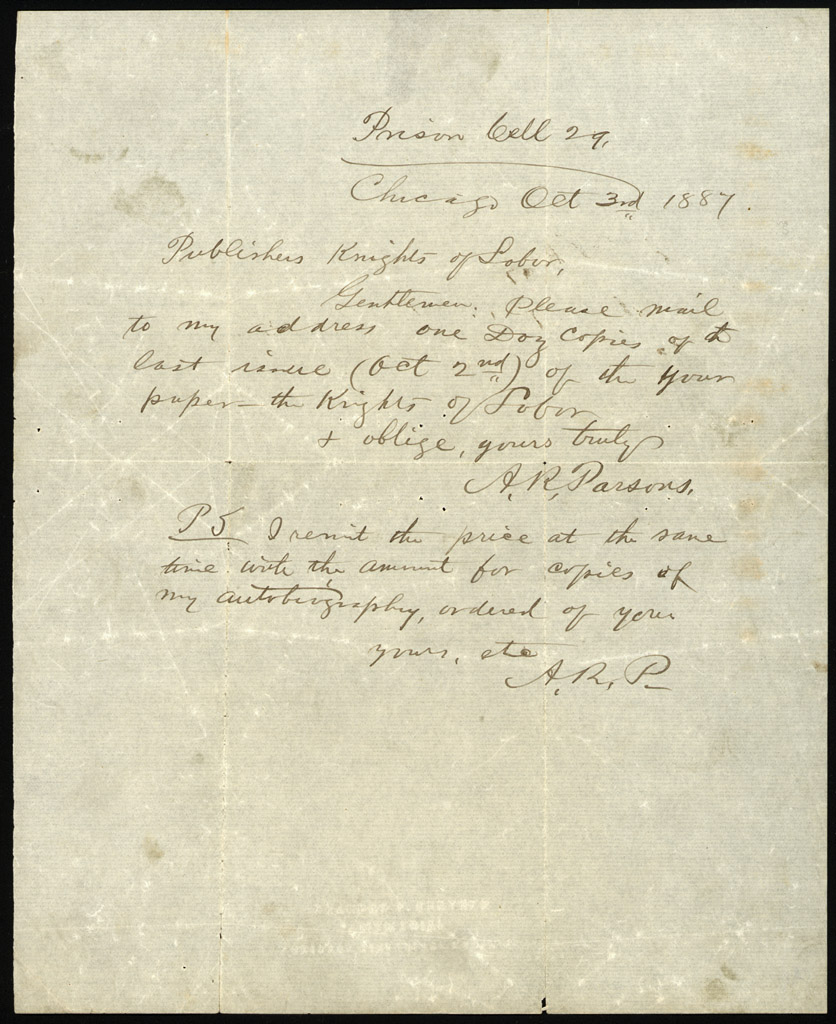 Prison Cell 29.
Chicago Oct 3rd 1887
Publishers Knights of Labor,
Gentlemen: Please mail
to my address one Doz copies of th
last issue (Oct 2nd) of the your
paper — the Knights of Labor
& oblige, yours truly
A. R. Parsons.
PS I remit the price at the same
time with the amount for copies of
my autobiography, ordered of you.
yours, etc
A. R. P.